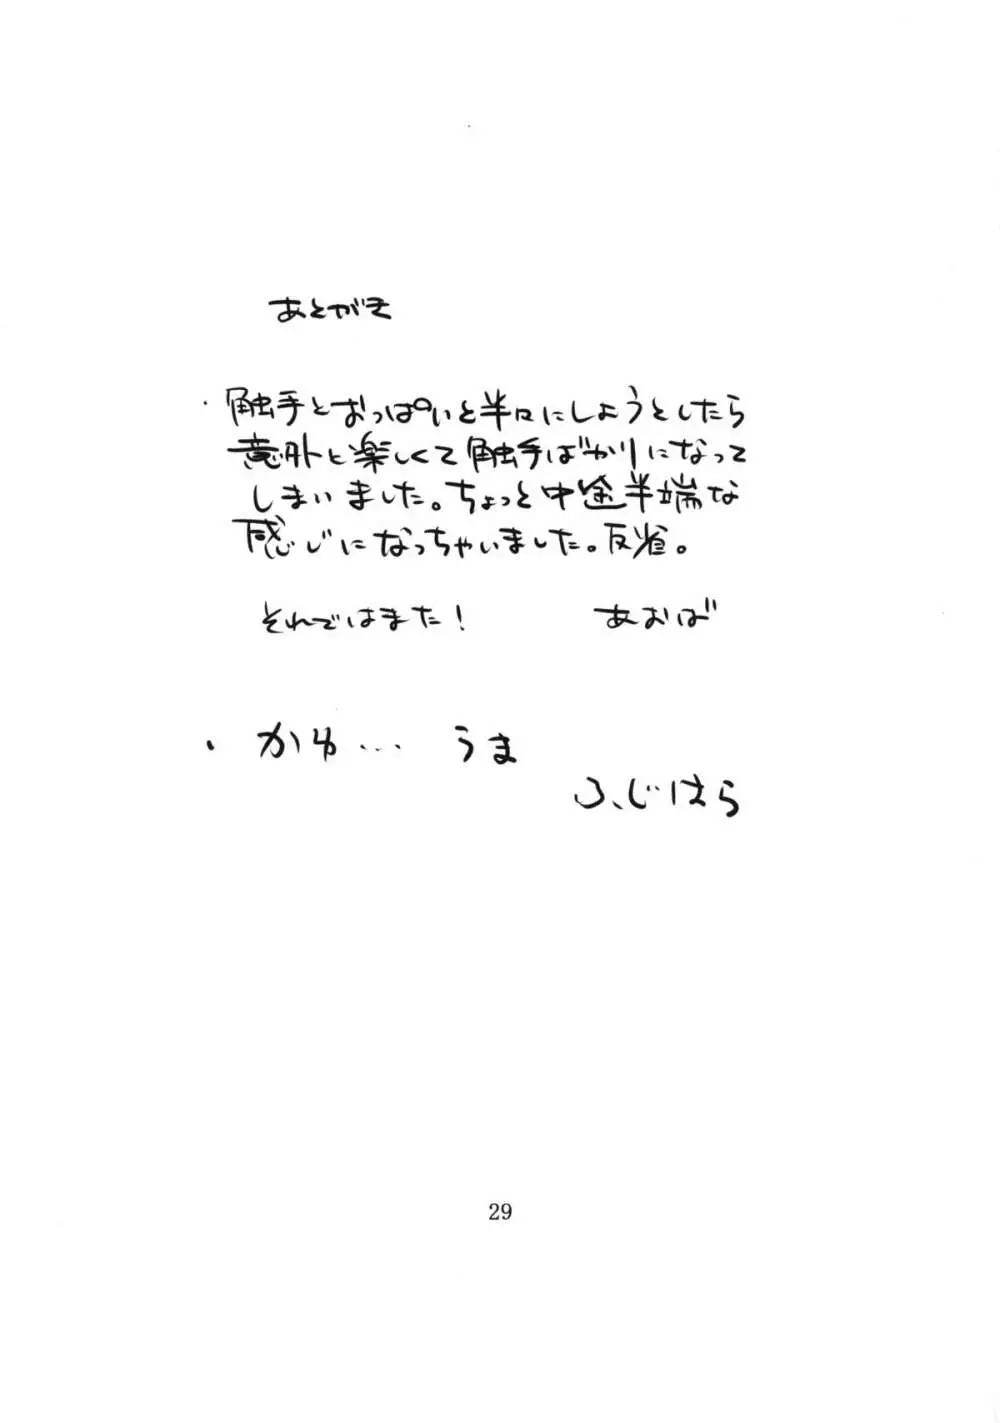 あとがき
・触手とおっぱいと半々にしようとしたら
意外と楽しくて触手ばかりになって
しまいました。ちょっと中途半端な
感じになっちゃいました。反省。
それではまた! あおば
・かゆ… うま
ふじはら
29